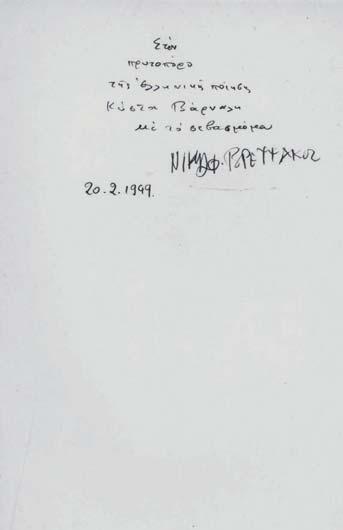 Στὸν
πρωτοπόρο
τῆς ἑλληνικῆς ποίησης
Κώστα Βάρναλη
μὲ τὸ σεβασμό μου
ΝΙΚΗΦ. ΒΡΕΤΤΑΚΟΣ
20.2.1949.